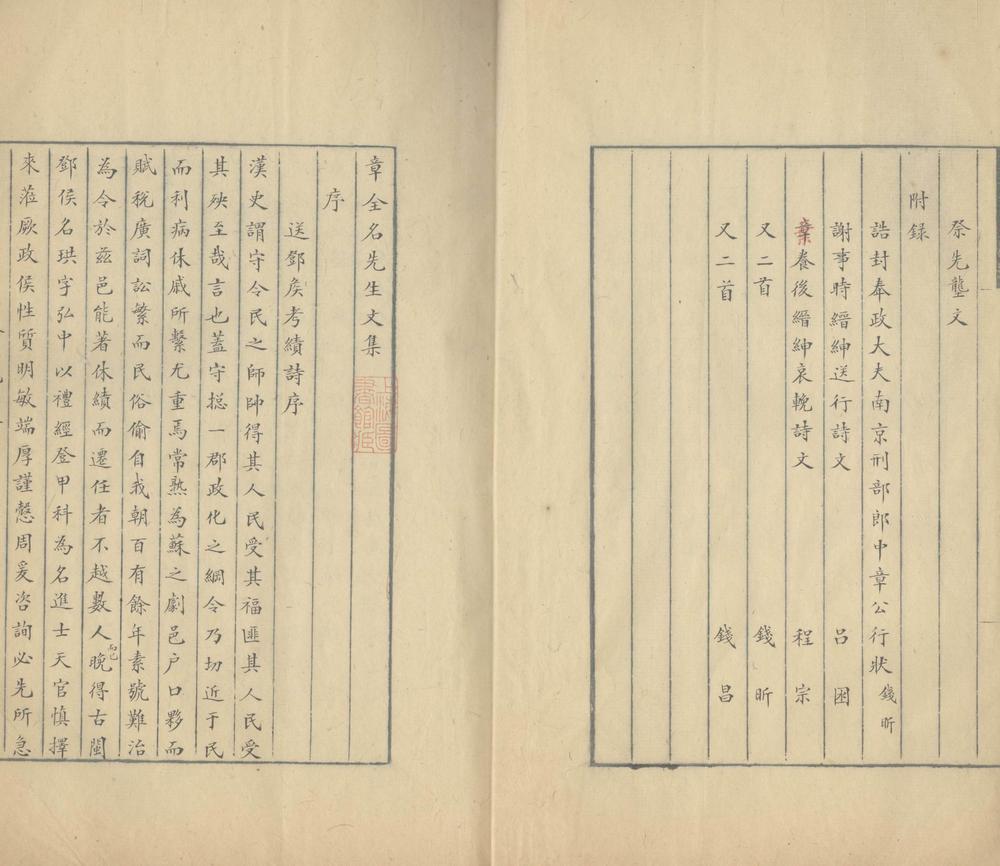 祭先壟文
附録
誥封奉政大夫南京刑部郎中章公行狀 錢昕
謝事時縉紳送行詩文 呂困
棄養後縉紳哀輓詩文 程宗
又二首 錢昕
又二首 錢昌
章全名先生文集
序
送鄧矦考績詩序
漢史謂守令民之師帥得其人民受其福匪其人民受
其殃至哉言也蓋守揔一郡政化之綱令乃切近于民
而利病休戚所繫尤重焉常熟為蘇之劇邑户口夥而
賦稅廣詞訟繁而民俗偷自我朝百有餘年素號難治
為令於兹邑能著休績而遷任者不越數人而已晚得古閩
鄧侯名珙字弘中以禮經登甲科為名進士天官慎擇
來蒞厥政侯性質明敏端厚謹慤周爰咨詢必先所急